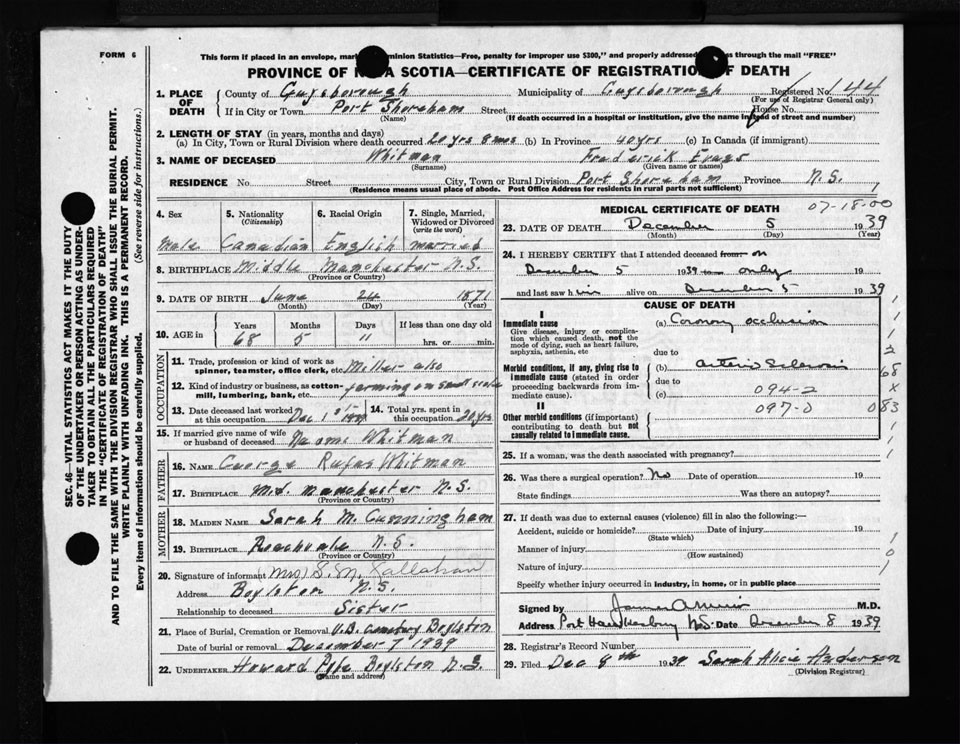 FORM 6
This form if placed in an envelope, mar ominion Statistics—Free, penalty for improper use $300," and properly addressed ss through the mail "FREE"
PROVINCE OF N A SCOTIA—CERTIFICATE OF REGISTRATION OF DEATH
1. PLACE OF DEATH County of Guysborough Municipality of Guysborough Registered No. 144
(For use of Registrar General only)
If in City or Town Port Shoreham Street House No.
(Name) (If death occurred in a hospital or institution, give the name instead of street and number)
2. LENGTH OF STAY (in years, months and days)
(a) In City, Town or Rural Division where death occurred 20 yrs 8 mos (b) In Province 40 yrs (c) In Canada (if immigrant)
3. NAME OF DECEASED Whitman Frederick
(Surname) (Given name or names)
RESIDENCE No. Street City, Town or Rural Division Port Shoreham Province N.S.
(Residence means usual place of abode. Post Office Address for residents in rural parts not sufficient)
4. Sex 5. Nationality 6. Racial Origin 7. Single, Married, Widowed or Divorced
(Citizenship) (write the word)
Male Canadian English married
8. BIRTHPLACE Middle Manchester N.S.
(Province or Country)
9. DATE OF BIRTH June 24 1871
(Month) (Day) (Year)
10. AGE in Years Months Days If less than one day old
68 5 11 hrs. or min.
OCCUPATION
11. Trade, profession or kind of work as spinner, teamster, office clerk, etc. Miller also
12. Kind of industry or business, as cotton-mill, lumbering, bank, etc. farming on small scale
13. Date deceased last worked at this occupation Dec 1 14. Total yrs. spent in this occupation 20 yrs
15. If married give name of wife or husband of deceased Naomi Whitman
FATHER
16. NAME George Rufas Whitman
17. BIRTHPLACE Md. Manchester N.S.
(Province or Country)
MOTHER
18. MAIDEN NAME Sarah M. Cunningham
19. BIRTHPLACE Roachvale N.S.
(Province or Country)
20. Signature of informant (Mrs) S. M. Callahan
Address Boylston N.S.
Relationship to deceased Sister
21. Place of Burial, Cremation or Removal U.B. Cemetery Boylston
Date of burial or removal December 7 1939
22. UNDERTAKER Howard Pyle Boylston N.S.
(Name and address)
MEDICAL CERTIFICATE OF DEATH 07-18-00
23. DATE OF DEATH December 5 1939
(Month) (Day) (Year)
24. I HEREBY CERTIFY that I attended deceased from on
December 5 1939 to only 19
and last saw him alive on December 5 1939
CAUSE OF DEATH
I
Immediate cause (a) Coronary occlusion
Give disease, injury or complication which caused death, not the mode of dying, such as heart failure, asphyxia, asthenia, etc
due to
Morbid conditions, if any, giving rise to immediate cause (stated in order proceeding backwards from immediate cause). (b) Arterio Sclerosis
due to
(c) 094-2
II
097-0 083
Other morbid conditions (if important) contributing to death but not causally related to immediate cause.
25. If a woman, was the death associated with pregnancy?
26. Was there a surgical operation? No Date of operation 19
State findings Was there an autopsy?
27. If death was due to external causes (violence) fill in also the following:—
Accident, suicide or homicide? Date of injury 19
(State which)
Manner of injury
(How sustained)
Nature of injury
Specify whether injury occurred in industry, in home, or in public place
Signed by M.D.
Address Port Hawkesbury N.S. Date December 8 1939
28. Registrar's Record Number
29. Filed Dec 8th 1939 Sarah Alice Anderson
(Division Registrar)
SEC. 46—VITAL STATISTICS ACT MAKES IT THE DUTY
OF THE UNDERTAKER OR PERSON ACTING AS UNDER-
TAKER TO OBTAIN ALL THE PARTICULARS REQUIRED
IN THE "CERTIFICATE OF REGISTRATION OF DEATH"
AND TO FILE THE SAME WITH THE DIVISION REGISTRAR WHO SHALL ISSUE THE BURIAL PERMIT.
WRITE PLAINLY WITH UNFADING INK. THIS IS A PERMANENT RECORD.
Every item of information should be carefully supplied. (See reverse side for instructions.)